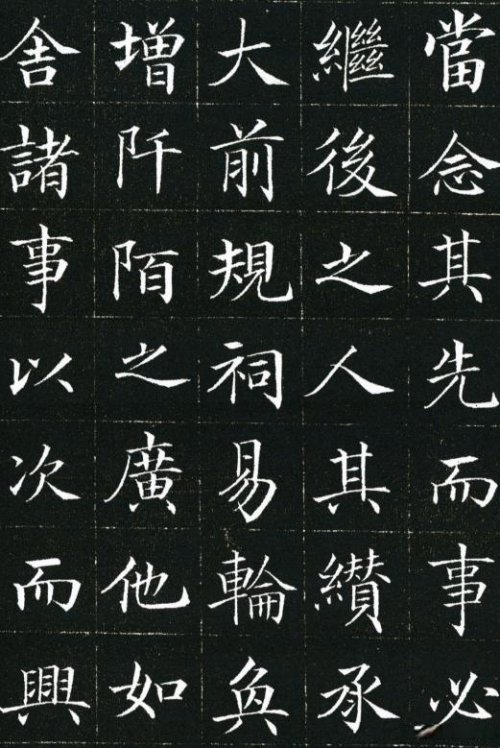 當念其先而事必
繼後之人其纘承
大前規祠易輪奐
增阡陌之廣他如
舍諸事以次而興